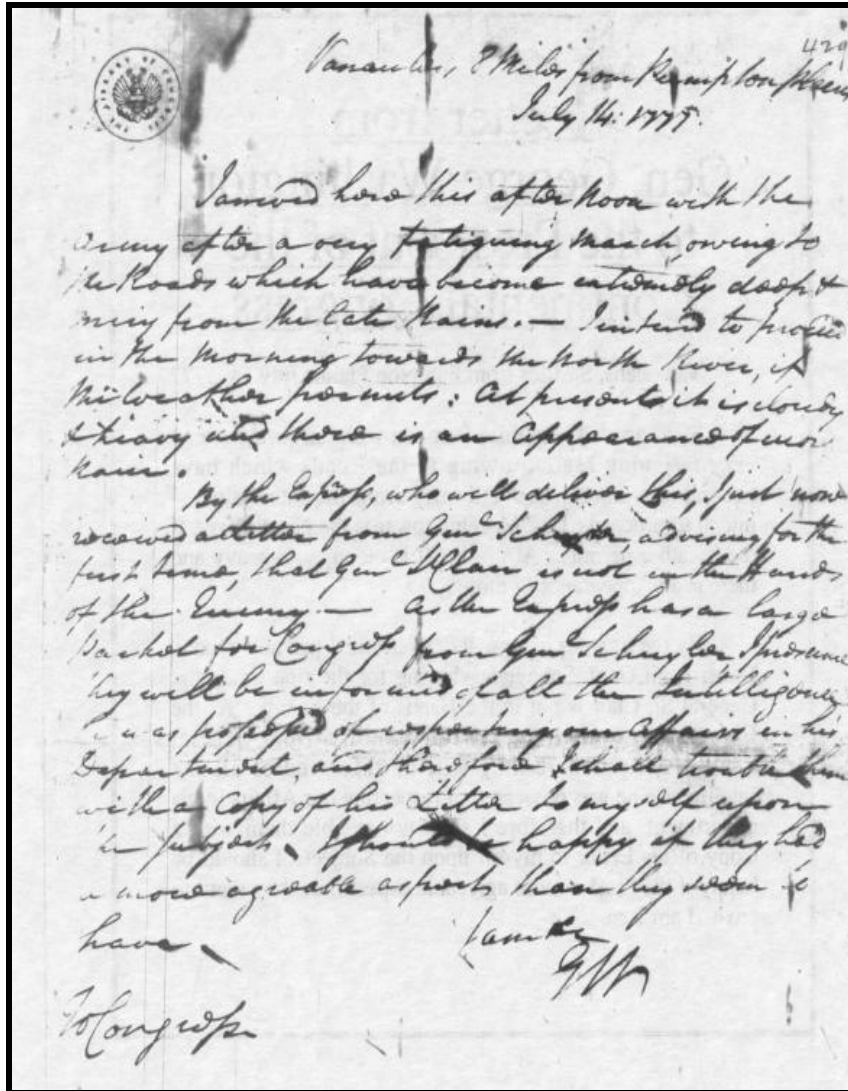 420
THE LIBRARY OF CONGRESS
Vanaulens, 8 Miles from Pumpton Plains
July 14: 1777.
I arrived here this after Noon with the
Army after a very fatiguing march, owing to
the Roads which have become extremely deep &
miry from the late Rains. — I intend to proceed
in the morning towards the North River, if
the weather permits: At present it is cloudy
& heavy and there is an Appearance of more
Rain.
By the Express, who will deliver this, I just now
received a Letter from Genl Schuyler advising for the
first time, that Genl St Clair is not in the Hands
of the Enemy. — As the Express has a large
Packet for Congress from Genl Schuyler I presume
they will be informed of all the Intelligence
he was possessed of respecting our Affairs in his
Department, and therefore I shall trouble them
with a Copy of his Letter to myself upon
the Subject. I should be happy if they had
a more agreable aspect than they seem to
have.
I am &c
GW
To Congress